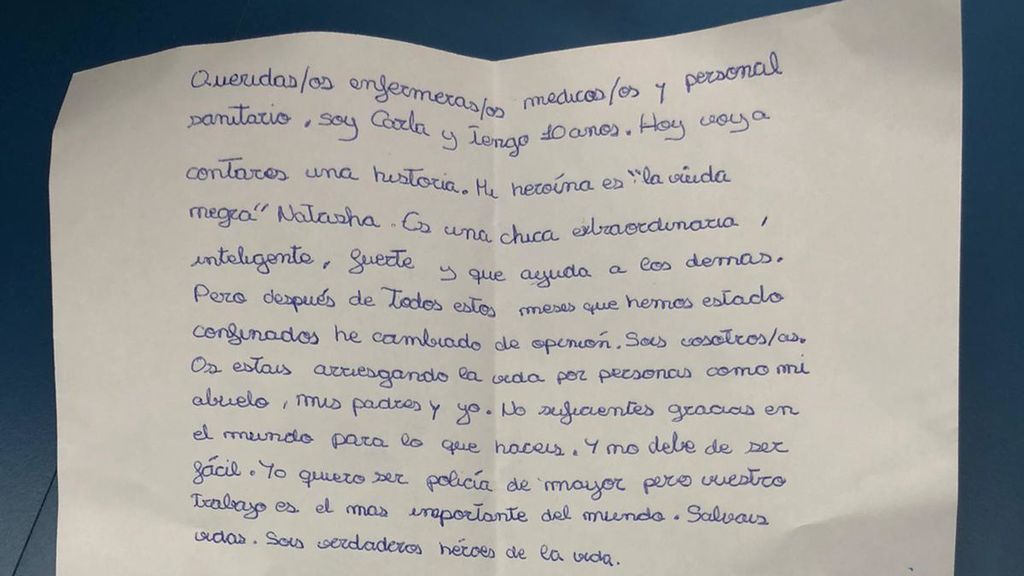 Queridas/os enfermeras/os medicos/os y personal
sanitario, soy Carla y tengo 10 anos. Hoy voy a
contaros una historia. Mi heroína es "la viuda
negra" Natasha. Es una chica extraordinaria,
inteligente, fuerte y que ayuda a los demas.
Pero después de todos estos meses que hemos estado
confinados he cambiado de opinión. Sois vosotros/as.
Os estais arriesgando la vida por personas como mi
abuelo, mis padres y yo. No suficientes gracias en
el mundo para lo que haceis. Y no debe de ser
fácil. Yo quiero ser policía de mayor pero vuestro
trabajo es el mas importante del mundo. Salvais
vidas. Sois verdaderos héroes de la vida.